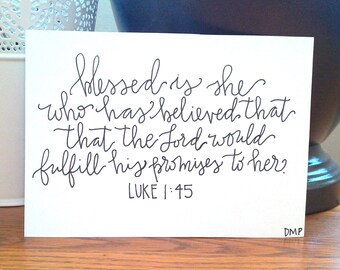 blessed is she
who has believed that
that the Lord would
fulfill his promises to her.
LUKE 1:45
DMP